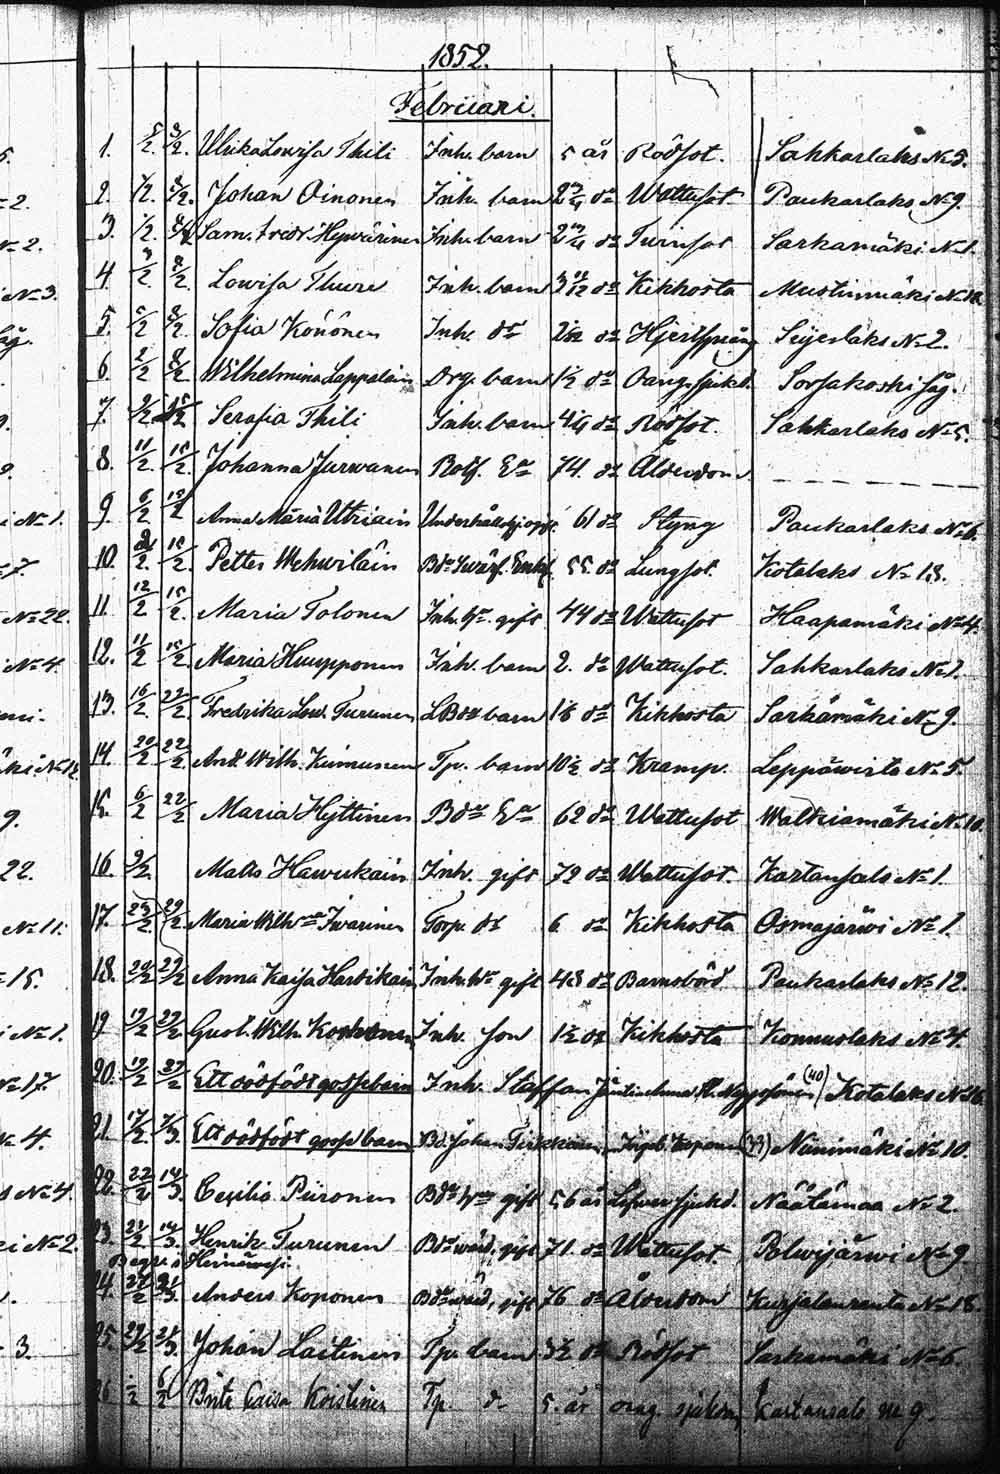 1852.
Februari.
1. 5/2. 8/2. Ulrika Lovisa Thili Inh. barn 5 år Rödsot. Sahkarlaks No 5.
2. 7/2. 8/2. Johan Oinonen Inh. barn 2 3/4 do Wattusot Paukarlaks No 9.
3. 1/2. 8/2 Sam. Fredr. Heyvärinen Inh. barn 2 3/4 do Tvinsot Sarkamäki No 1.
4 3/2 8/2. Lovisa Thure Inh. barn 3 11/12 do Kikhosta Mustinmäki No 18
5. 5/2 8/2. Sofia Könönen Inh. do do Hjertsprång Seijerlaks No 2.
6. 2/2 8/2 Wilhelmina Lappalain barn 1 1/2 do Oang. sjukd. Sorsakoski såg.
7. 9/2 15/2 Serafia Thili Inh. barn 4 1/4 do Rödsot. Sahkarlaks No 5.
8. 11/2. 15/2. Johanna Jurvanen Rotf. Ea 74. do Ålderdom
9. 6/2 15/2 Anna Maria Utriain Underhållshj. ogift 61 do Styng Paukarlaks No 6.
10. 2/2. 15/2. Petter Wehviläin Bde Svärf. Enkl. 55 do Lungsot. Kotalaks No 18.
11. 12/2 15/2. Maria Tolonen Inh. hu gift 44 do Wattusot Haapamäki No 4.
12. 11/2 15/2. Maria Huupponen Inh. barn 2. do Wattusot. Sahkarlaks No 1.
13. 16/2. 22/2. Fredrika Lov. Turunen LBde barn 1 do Kikhosta Sarkämäki No 9.
14. 20/2 22/2. And. Wilh. Kuimunen Tp. barn 10 1/2 do Kramp. Leppäwirta No 5.
15. 6/2 22/2 Maria Hyttinen Bde Ea 62 do Wattusot Walkiamäki No 10.
16. 9/2. Matts Hawukain Inh. gift 72 do Wattusot. Kartansalo No 1.
17. 23/2 29/2 Maria Wilhna Iwarinen Torp. do 6 do Kikhosta Osmajärwi No 1.
18. 24/2 29/2 Anna Kaisa Hartikain Inh. hu gift 48 do Barnsbörd Paukarlaks No 12.
19 19/2 29/2 Gust. Wilh. Korhonen Inh. son 1 1/2 do Kikhosta Konnuslaks No 4.
20. 19/2 29/2 Ett dödfödt gossebarn Inh. Staffan Jäntti Anna (40) Kotalaks No 16.
21. 17/2. 7/3. Ett dödfödt gossebarn Bd. Johan Tirkkonen, Ingeb. Koponen (33) Niinimäki No 10.
22. 22/2 14/3. Cecilia Piironen Bde hu gift 56 år Lefversjukd. Näätämaa No 2.
23. 21/2 14/3. Henrik Turunen Bde wärd. gift 71. do Wattusot. Polwijärwi No 9
Begr. i Heinäwesi.
24. 27/2 21/3. Anders Koponen Bde wärd, gift 76 do Ålderdom Kurjalanranta No 18.
25. 29/2 21/3. Johan Laitinen Tp. barn 3 1/2 do Rödsot Sarkamäki No 6.
26 6/2 Brita Caisa Koistinen Tp. d 5. år oang. sjukdom, Kartansalo No 9.